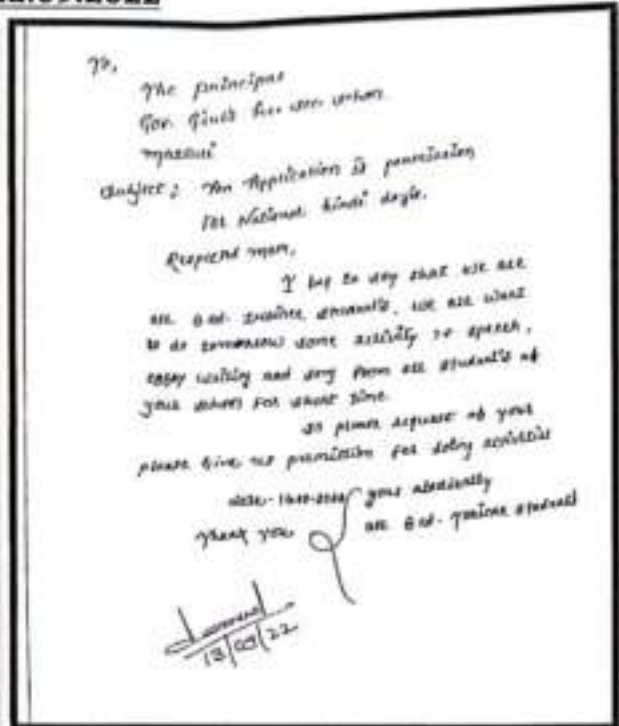 To,
The principal
Gov. Girls hee sec school
Subject: An Application is permission
for National hindi days.
Respected mam,
I beg to say that we are
all B.ed. trainee students, we are want
to do tomorrow some activity so speech,
essay writing and song from all student's of
your school for short time.
so please request of your
please Give us permission for doing activities
date-
Thank you
your obediently
all B.ed. trainee students
13/09/22